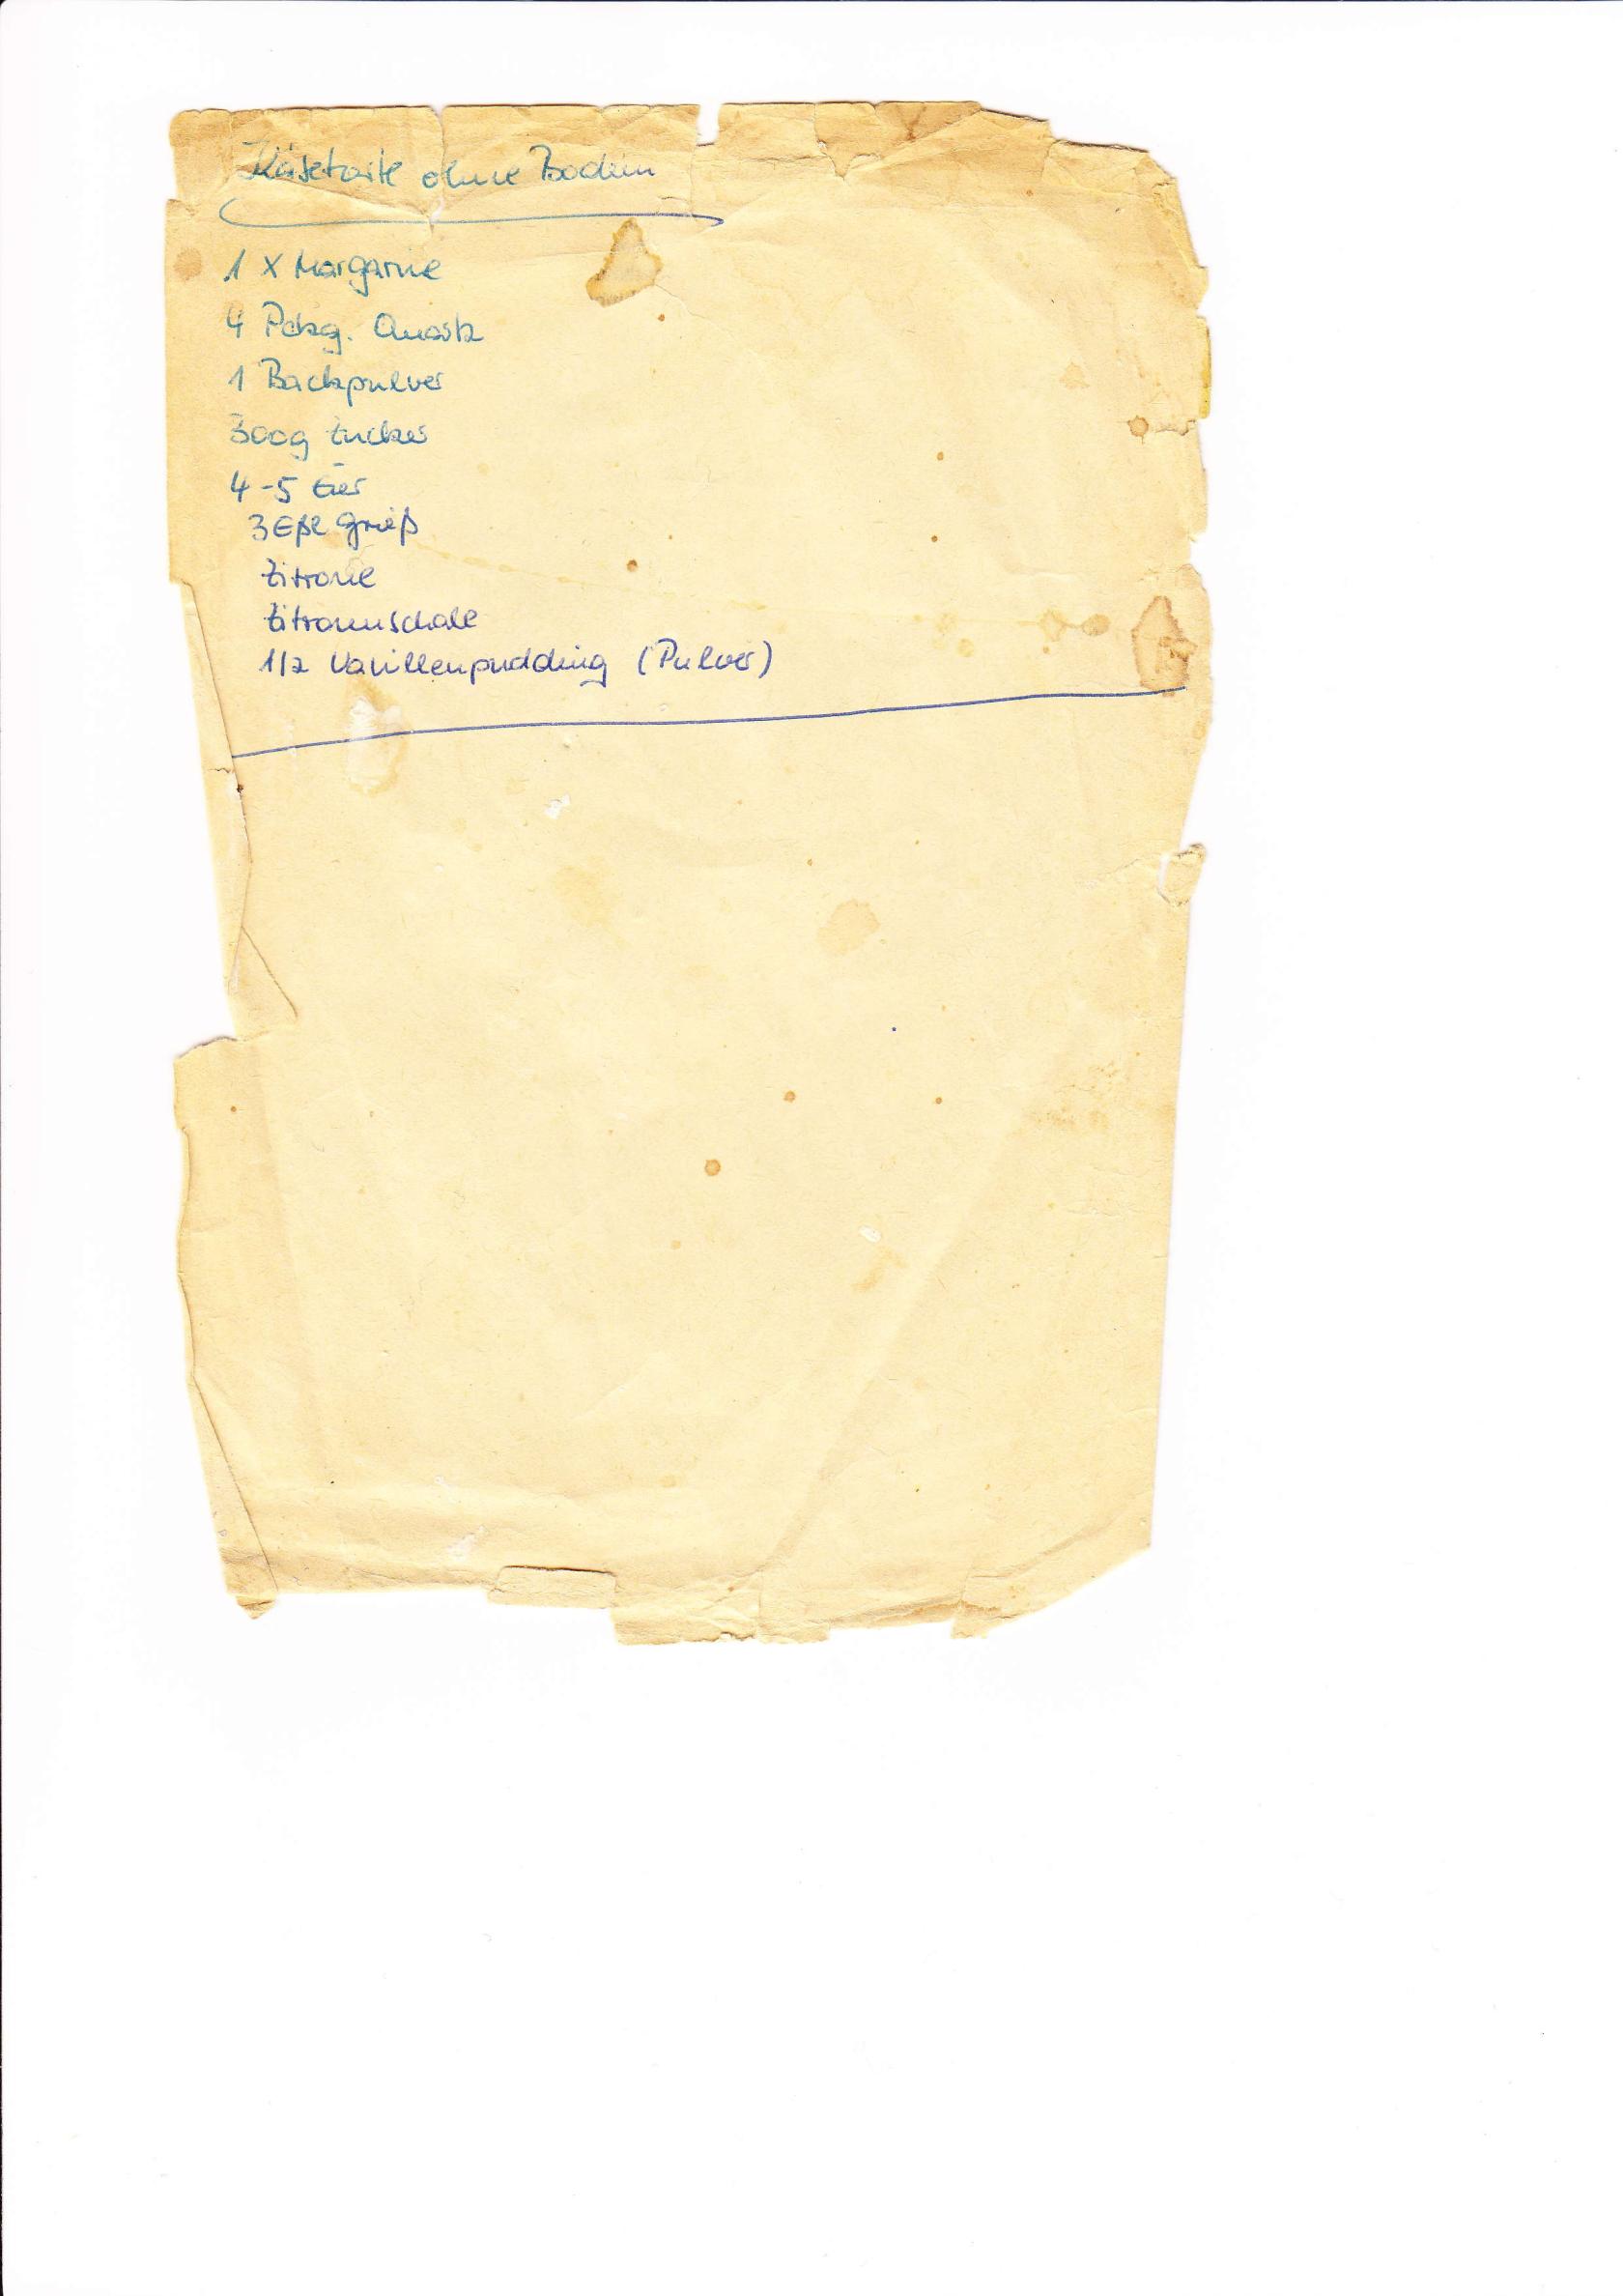 Käsetorte ohne Boden
1 x Margarine
4 Pckg. Quark
1 Backpulver
300g Zucker
4-5 Eier
3 Eßl Grieß
Zitrone
Zitronenschale
1/2 Vanillenpudding (Pulver)